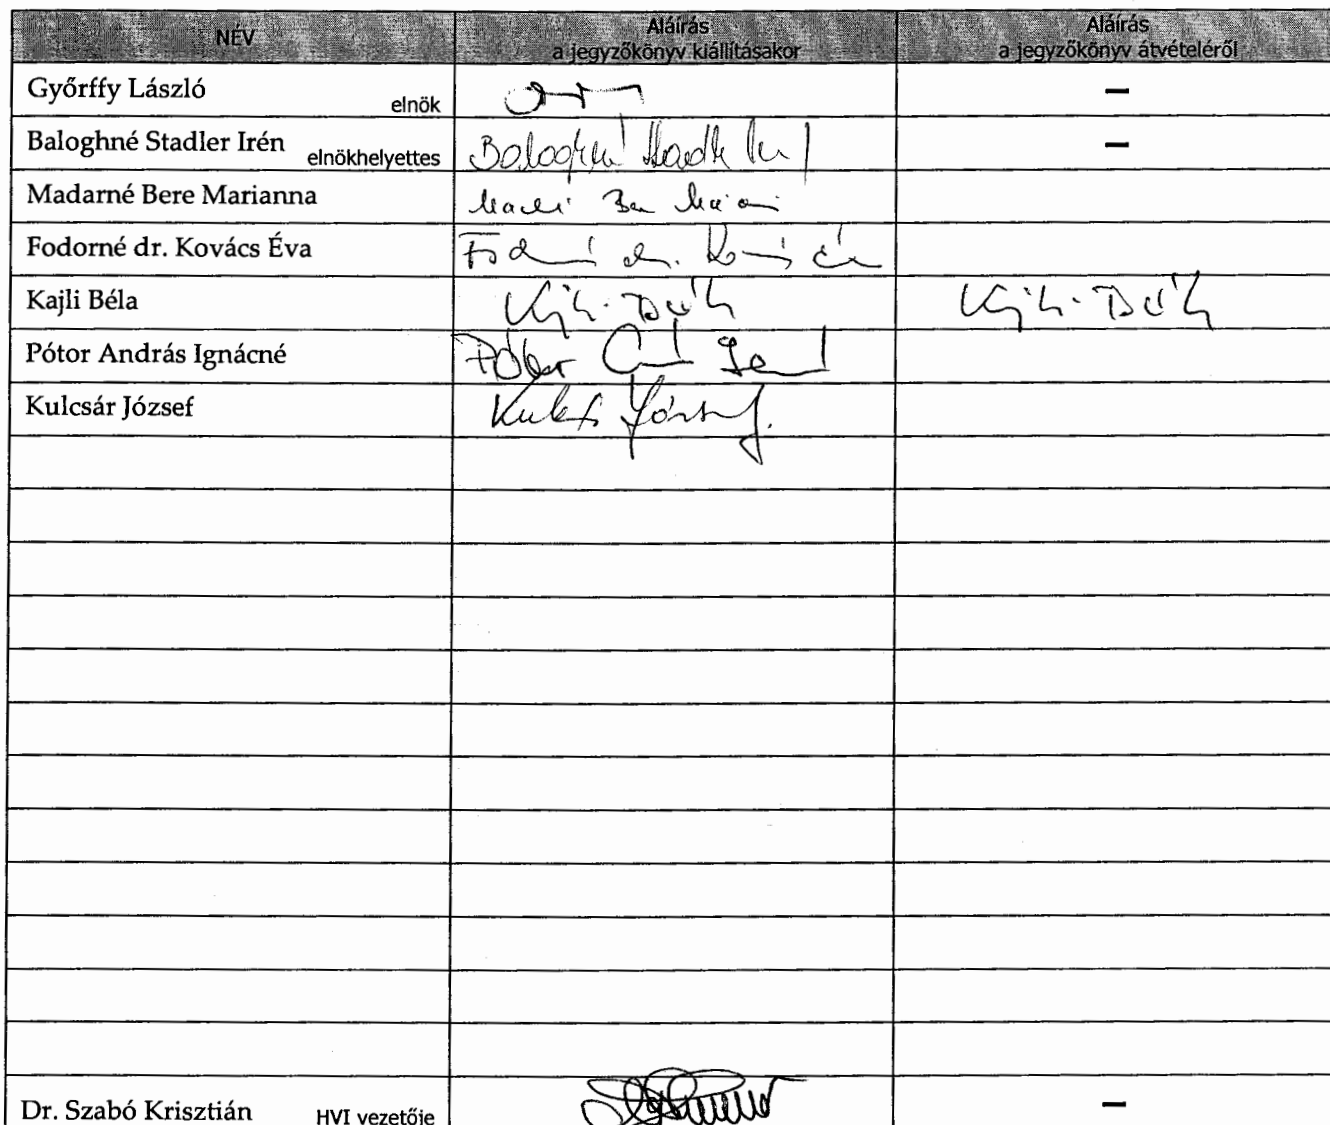 NÉV
Aláírás
a jegyzőkönyv kiállításakor
Aláírás
a jegyzőkönyv átvételéről
Győrffy László elnök –
Baloghné Stadler Irén elnökhelyettes Baloghné Stadler –
Madarné Bere Marianna
Fodorné dr. Kovács Éva Fodorné dr. Kovács Éva
Kajli Béla
Pótor András Ignácné Pótor
Kulcsár József József
Dr. Szabó Krisztián HVI vezetője –